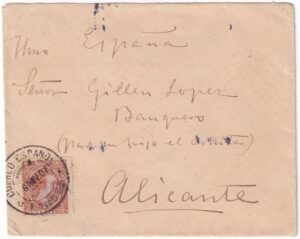 España
Señor Gillen Lopez
Banquero
(para su hijo el artista)
Alicante
CORREO ESPAÑOL